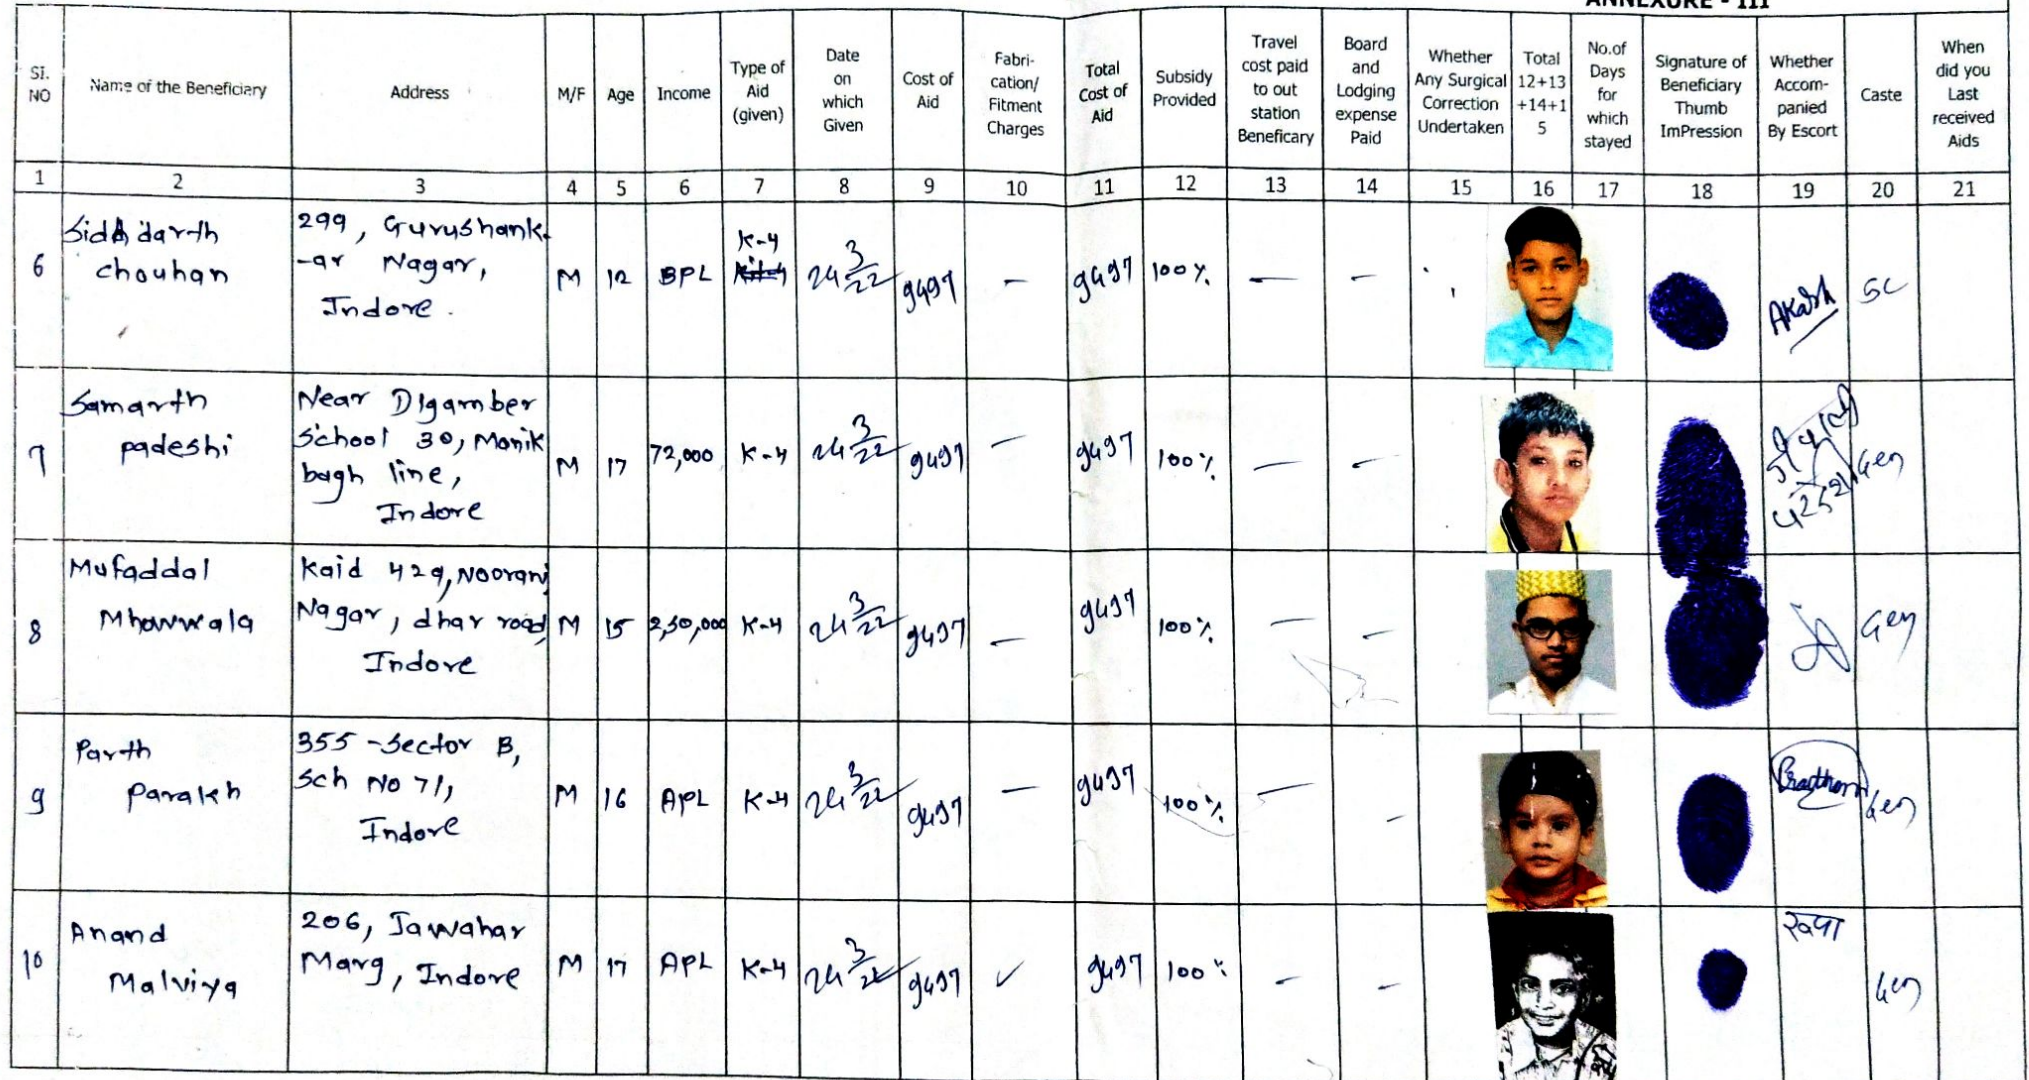 ANNEXURE - III
Sl. NO | Name of the Beneficiary | Address | M/F | Age | Income | Type of Aid (given) | Date on which Given | Cost of Aid | Fabri-cation/ Fitment Charges | Total Cost of Aid | Subsidy Provided | Travel cost paid to out station Beneficary | Board and Lodging expense Paid | Whether Any Surgical Correction Undertaken | Total 12+13+14+15 | No.of Days for which stayed | Signature of Beneficiary Thumb ImPression | Whether Accom-panied By Escort | Caste | When did you Last received Aids
1 2 3 4 5 6 7 8 9 10 11 12 13 14 15 16 17 18 19 20 21
6 | Siddhdarth chouhan | 299, Gurushank-ar Nagar, Indore. | M | 12 | BPL | K-4 | 24 3/22 | 9497 | – | 9497 | 100% | – | – | Akash | SC
7 | Samarth padeshi | Near Digamber School 30, Manik bagh line, Indore | M | 17 | 72,000 | K-4 | 24 3/22 | 9497 | – | 9497 | 100% | – | – | Gen
8 | Mufaddal Mhowwala | Kaid 429, Noorani Nagar, dhar road, Indore | M | 15 | 2,50,000 | K-4 | 24 3/22 | 9497 | – | 9497 | 100% | – | – | Gen
9 | Parth Parakh | 355-Sector B, Sch No 71, Indore | M | 16 | APL | K-4 | 24 3/22 | 9497 | – | 9497 | 100% | – | – | Gen
10 | Anand Malviya | 206, Jawahar Marg, Indore | M | 17 | APL | K-4 | 24 3/22 | 9497 | ✓ | 9497 | 100% | – | – | Gen